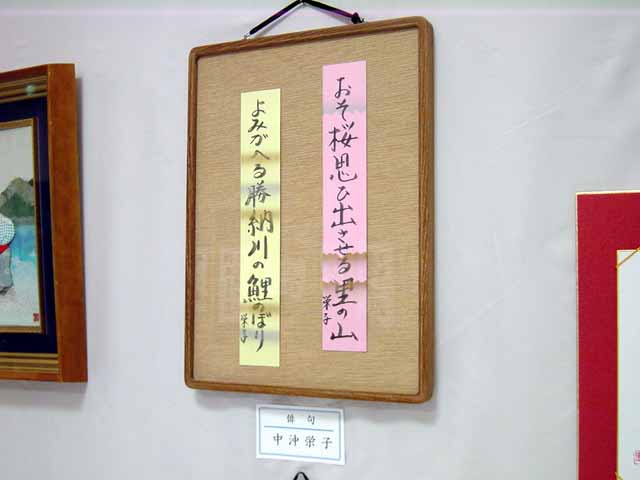 おそ桜思ひ出させる里の山
栄子
よみがへる勝納川の鯉のぼり
栄子
俳句
中沖栄子